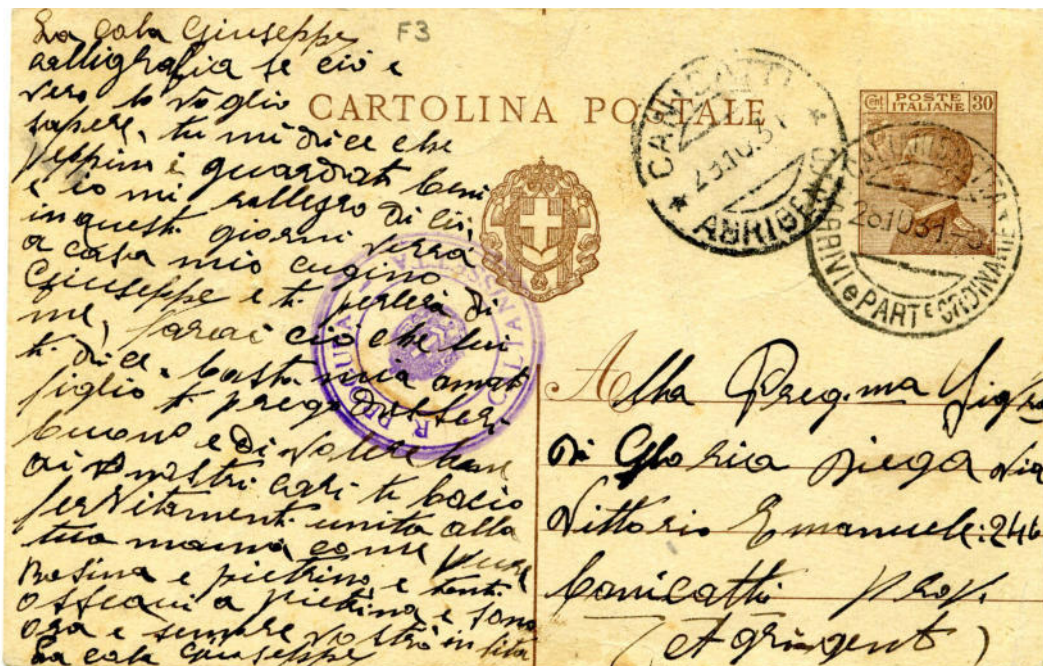 La cola Giuseppe
F3
calligrafia se ciò è
vero lo voglio
sapere, tu mi dice che
peppini è guardati beni
e io mi rallegro di ciò,
in questi giorni verrà
a casa mio cugino
Giuseppe e ti perlerà di
me, farai ciò che lui
ti dice, basta mia amat
figlio ti prego
buono e di volere bene
ai nostri cari ti bacio
unita alla
tua mamma come pure
Rosina e pietrino e tanti
ossequi a pietrina e sono
ora e sempre vostro in vita
La cola Giuseppe
CARTOLINA POSTALE
Cent POSTE ITALIANE 30
CANICATTI
29.10.31
AGRIGENTO
28.10.31
ARRIVI e PARTE ORDINARIE
R. PROCURA
CALTANISSETTA
Alla Preg.ma Sig.ra
Di Gloria piega via
Vittorio Emanuele: 246
Canicatti prov.
(Agrigent)